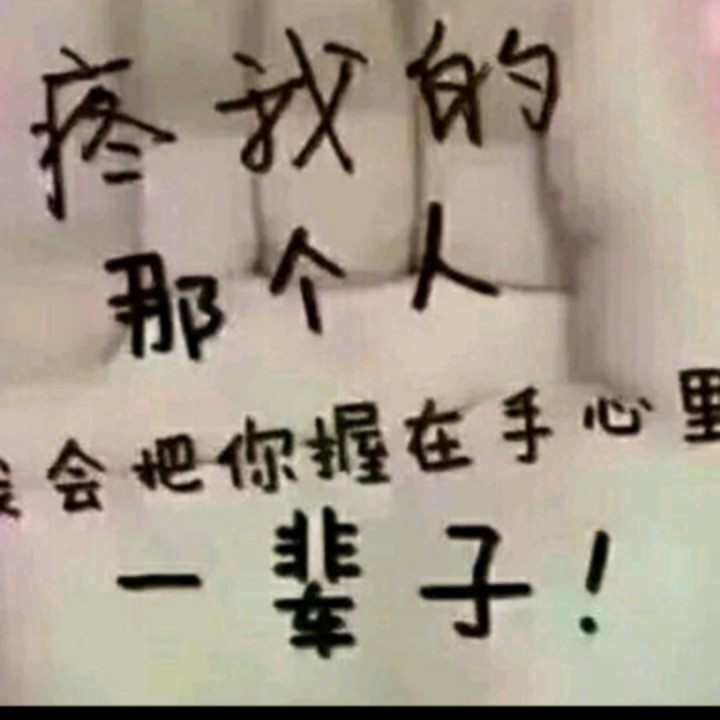 疼我的
那个人
会把你握在手心里
一辈子!